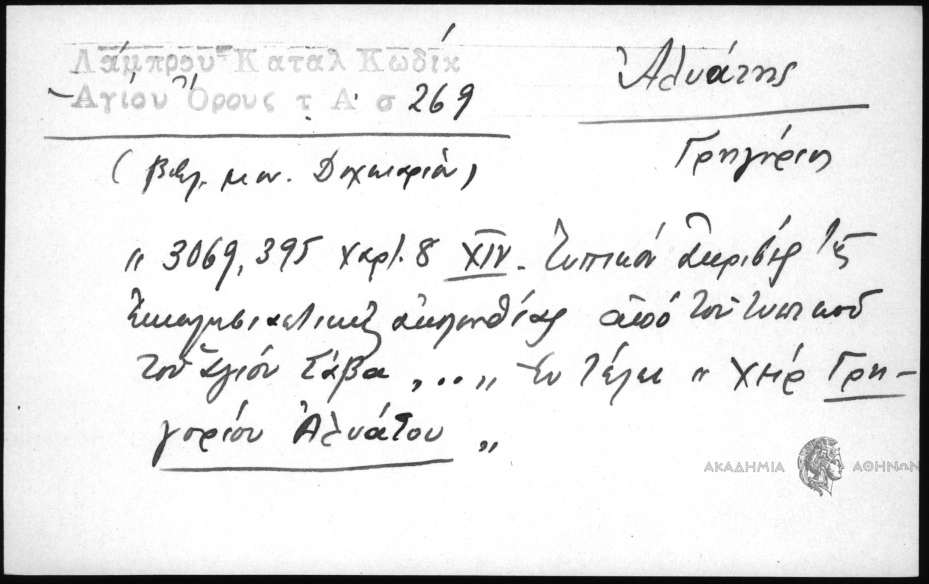 Λάμπρου Καταλ Κωδίκ
Ἁγίου Ὄρους τ Α' σ 269
Ἀλυάτης
Γρηγόριος
(βιβλ. μον. Δοχειαρίου)
" 3069, 395 χαρτ. 8 XIV. Τυπικὸν ἀκριβὲς τῆς
ἐκκλησιαστικῆς ἀκολουθίας ἀπὸ τοῦ τυπικοῦ
τοῦ ἁγίου Σάβα „ .. „ Ἐν τέλει " Χεὶρ Γρη-
γορίου Ἀλυάτου „
ΑΚΑΔΗΜΙΑ ΑΘΗΝΩΝ